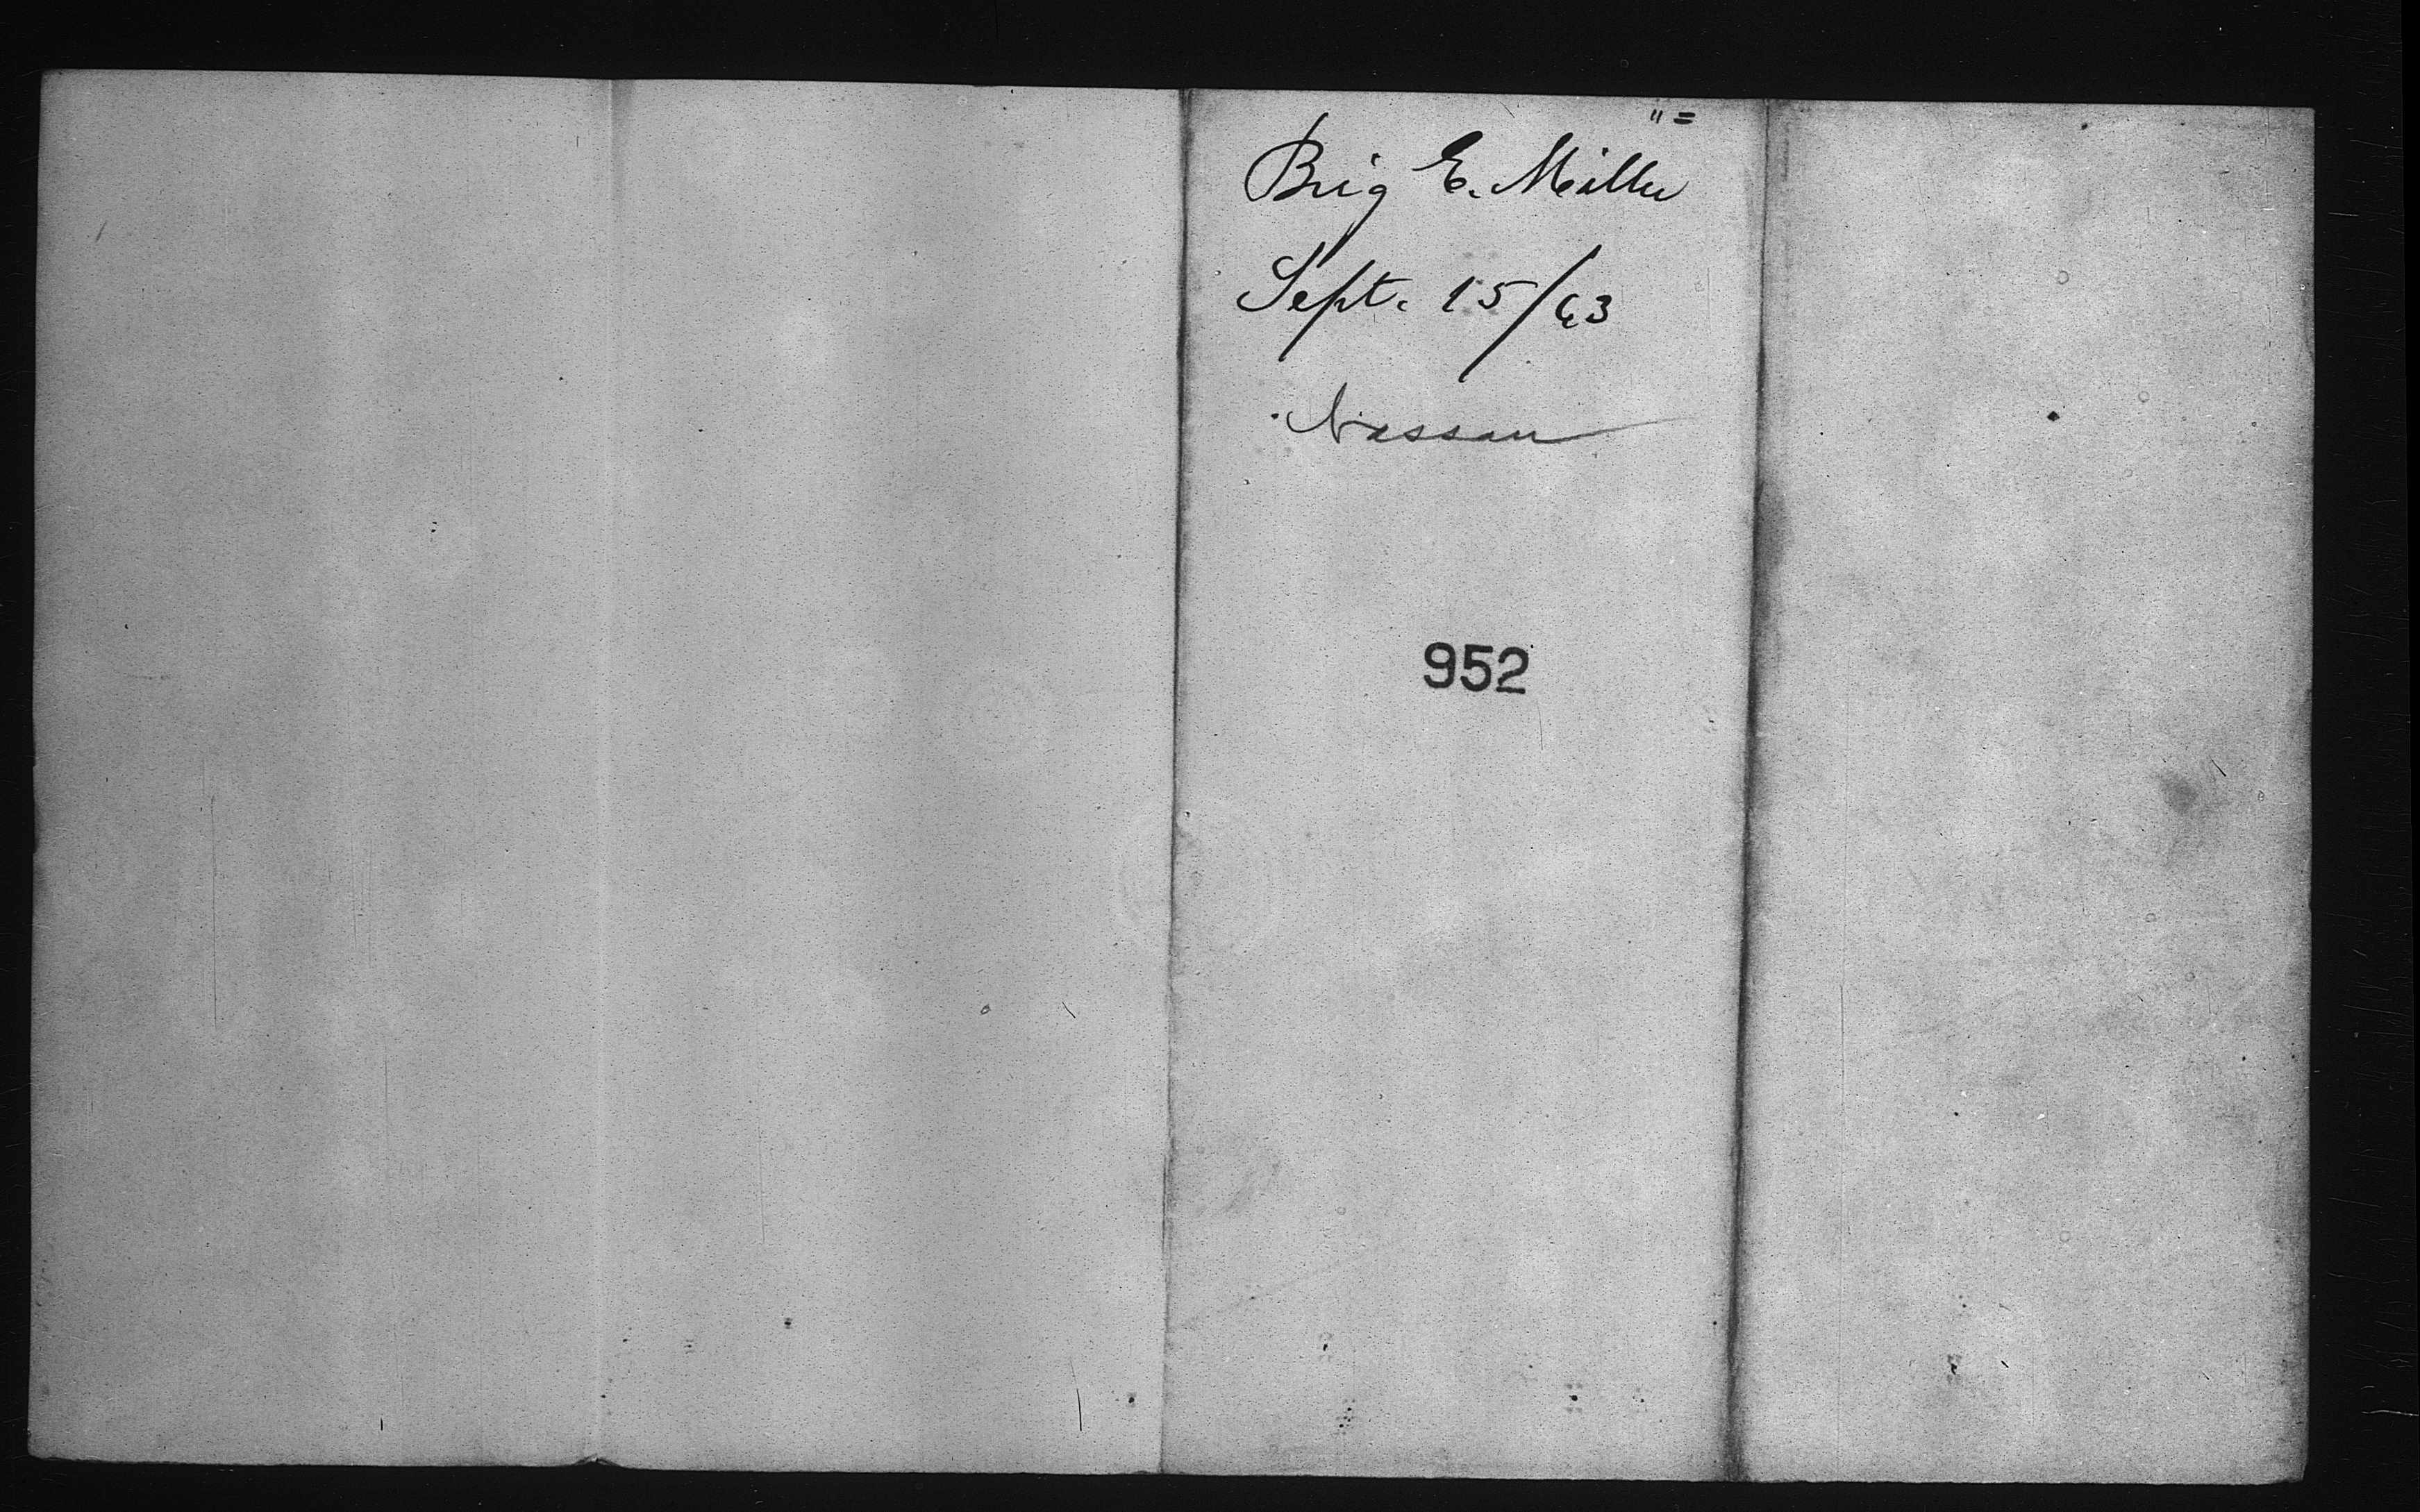 Brig E. Miller
Sept. 15/63
Nassau
952